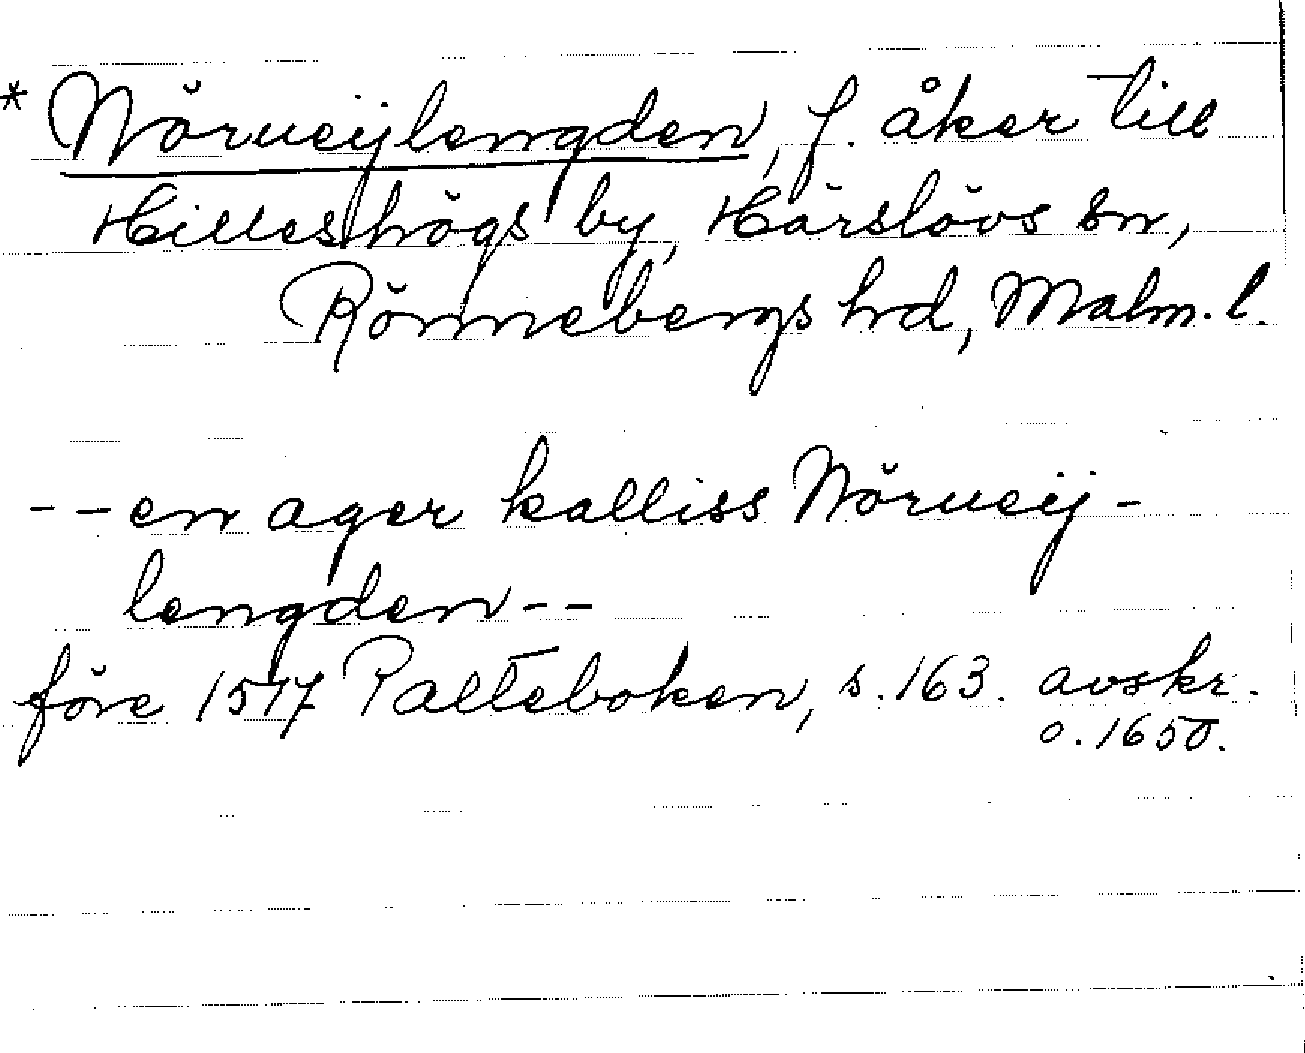 * Nörueijlengden, f. åker till
Hilleshögs by, Härslövs sn,
Rönnebergs hrd, Malm. l.
- - en ager kalliss Nörueij-
lengden - -
före 1517 Palteboken, s. 163. avskr.
o. 1650.